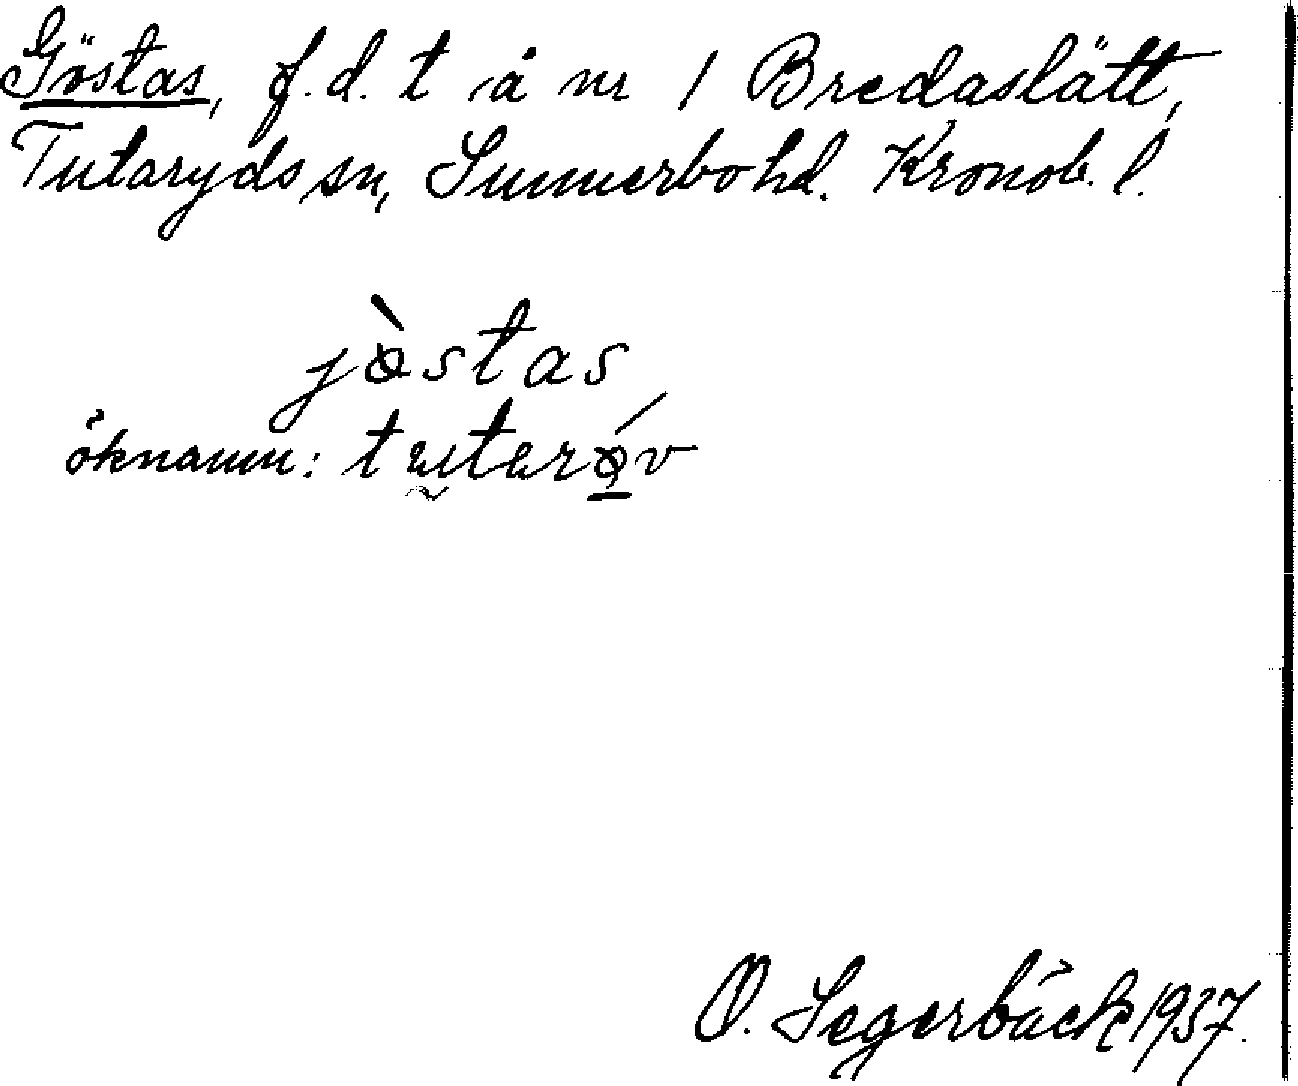 Göstas, f.d. t å nr 1 Bredaslätt,
Tutaryds sn, Sunnerbo hd. Kronob. l.
jø̀stas
öknamn: tutarǿv
O. Segerbäck 1937.